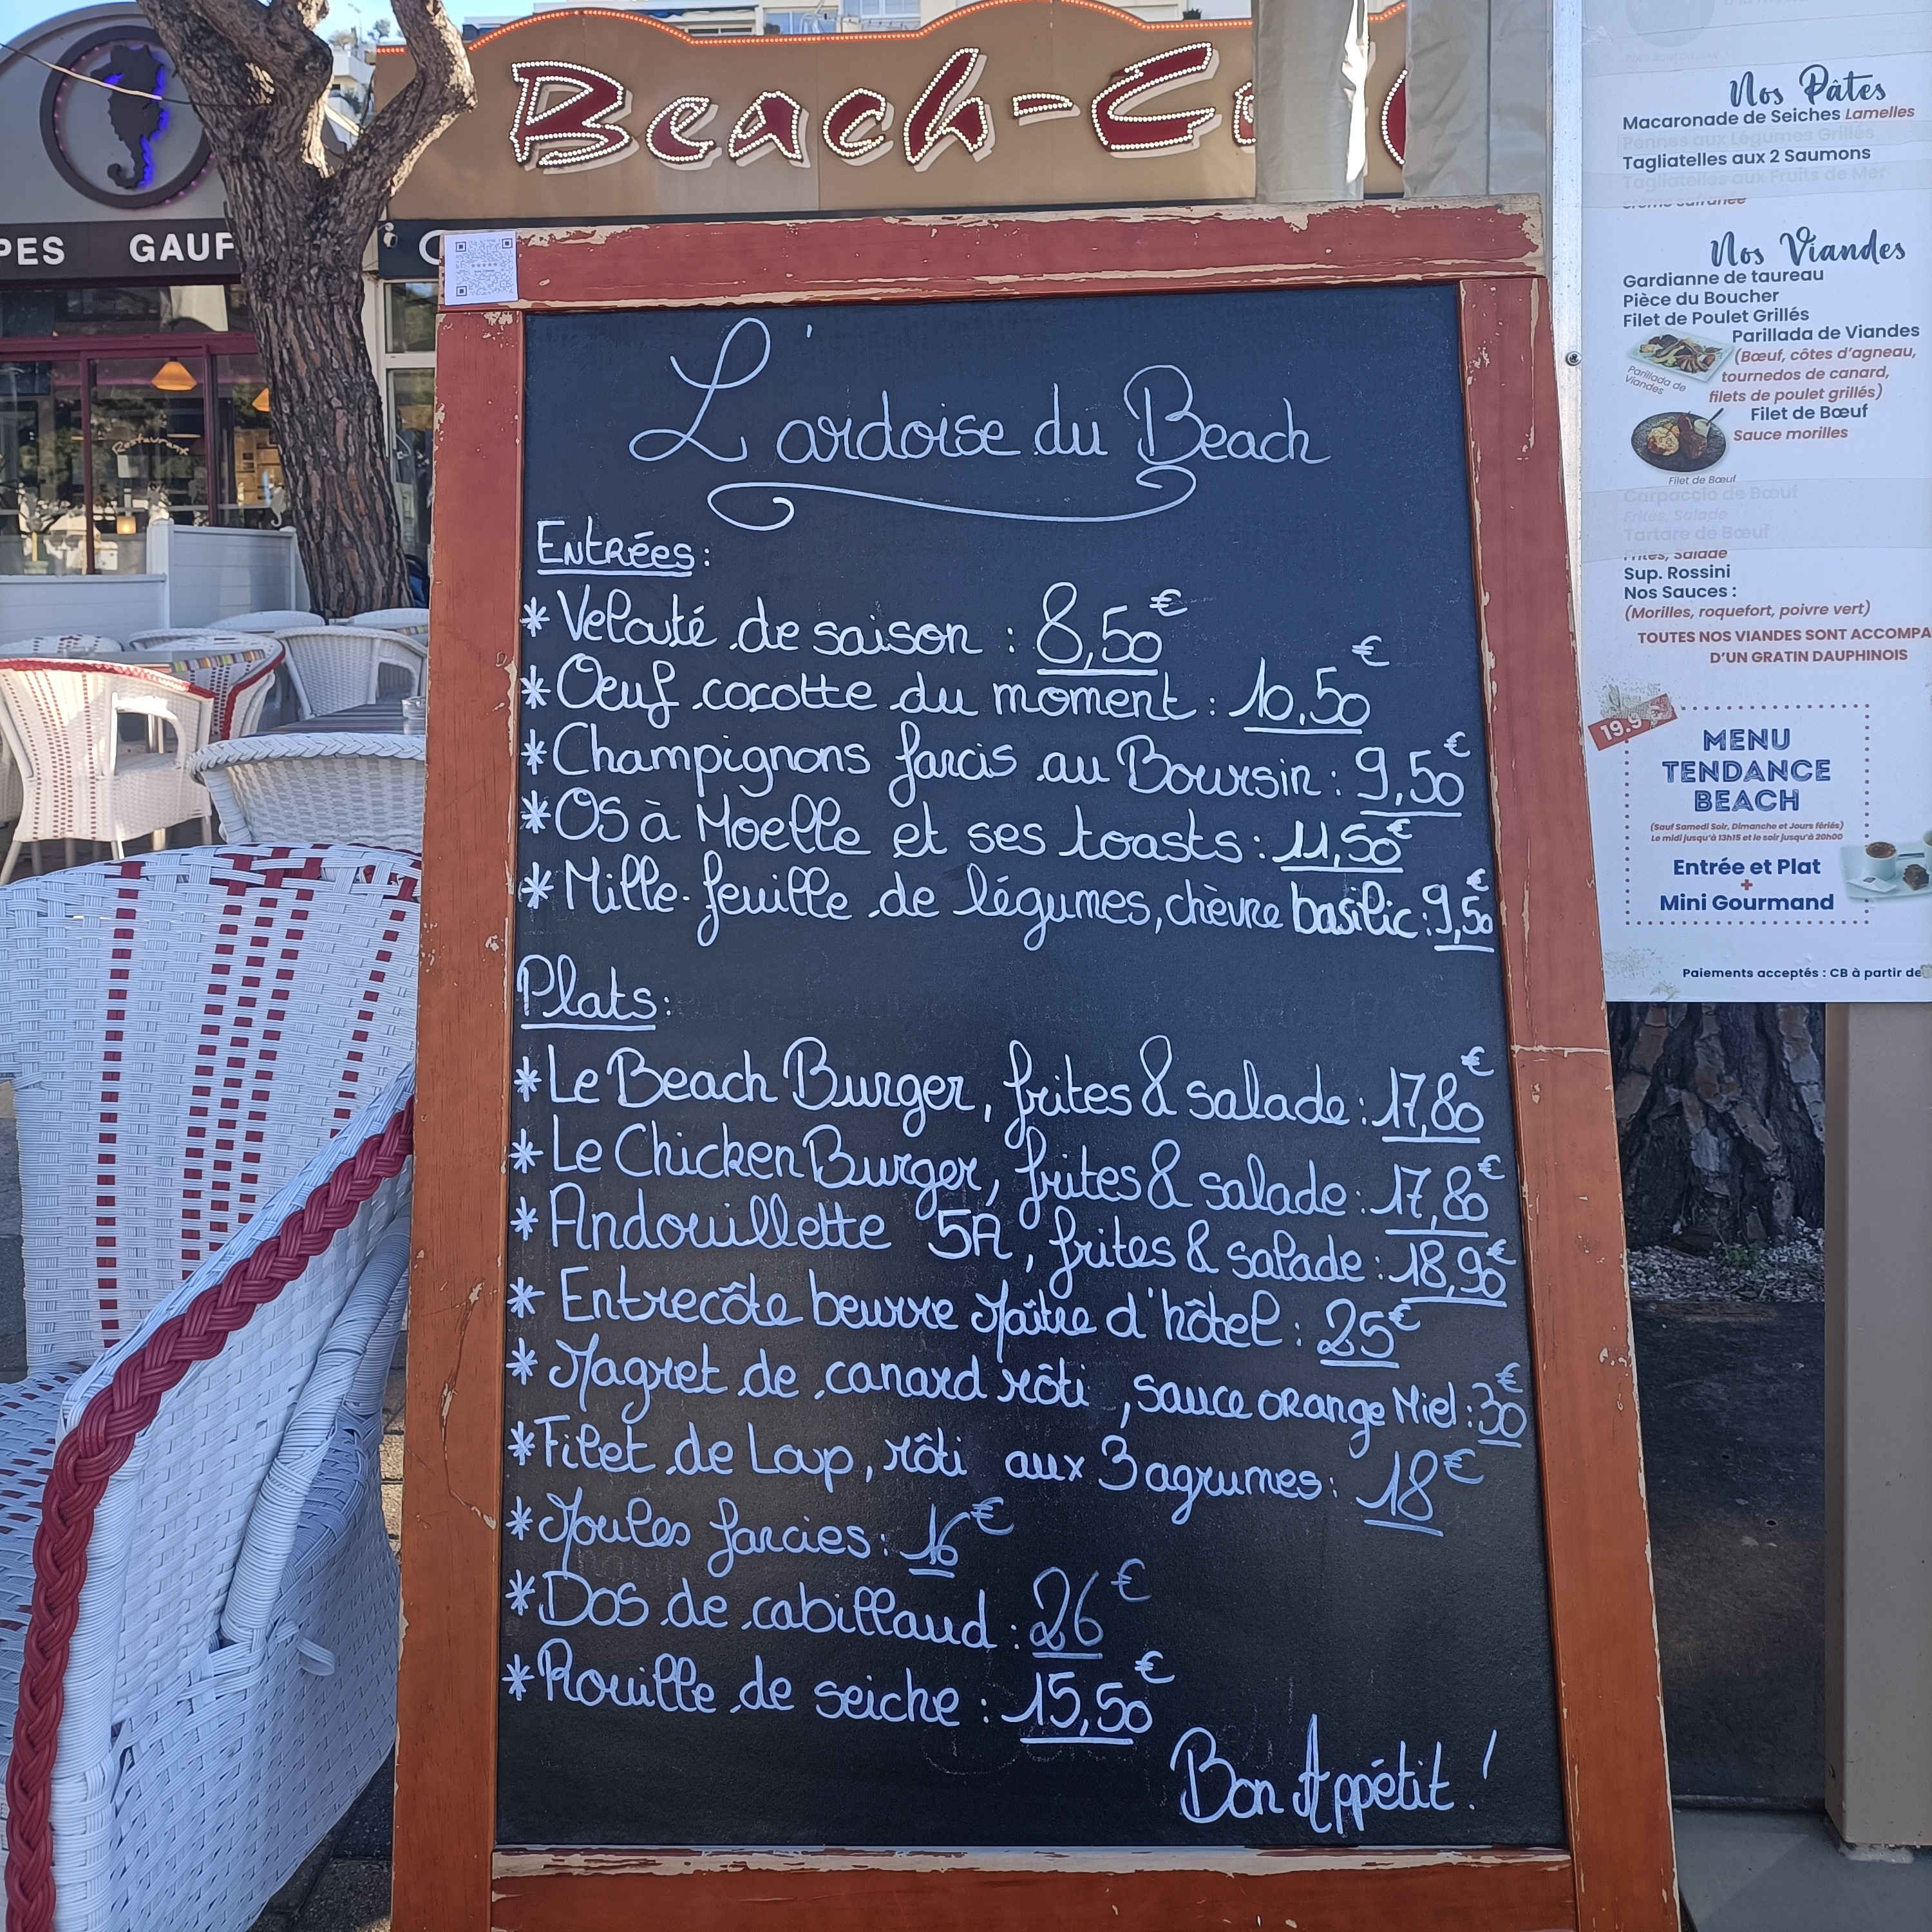 Beach-C
PES GAUF
Restaurant
L'ardoise du Beach
Entrées:
* Velouté de saison : 8,50€
* Œuf cocotte du moment : 10,50€
* Champignons farcis au Boursin : 9,50€
* Os à Moelle et ses toasts : 11,50€
* Mille-feuille de légumes, chèvre basilic : 9,50€
Plats:
* Le Beach Burger, frites & salade : 17,80€
* Le Chicken Burger, frites & salade : 17,80€
* Andouillette 5A, frites & salade : 18,90€
* Entrecôte beurre Maître d'hôtel : 25€
* Magret de canard rôti, sauce orange Miel : 30€
* Filet de Loup, rôti aux 3 agrumes : 18€
* Moules farcies : 16€
* Dos de cabillaud : 26€
* Rouille de seiche : 15,50€
Bon Appétit !
Nos Pâtes
Macaronade de Seiches Lamelles
Pennes aux Légumes Grillés
Tagliatelles aux 2 Saumons
Tagliatelles aux Fruits de Mer
Crème safranée
Nos Viandes
Gardianne de taureau
Pièce du Boucher
Filet de Poulet Grillés
Parillada de Viandes
(Bœuf, côtes d'agneau,
tournedos de canard,
filets de poulet grillés)
Parillada de
Viandes
Filet de Bœuf
Sauce morilles
Filet de Bœuf
Carpaccio de Bœuf
Frites, Salade
Tartare de Bœuf
Frites, Salade
Sup. Rossini
Nos Sauces :
(Morilles, roquefort, poivre vert)
TOUTES NOS VIANDES SONT ACCOMPA
D'UN GRATIN DAUPHINOIS
19.9
MENU
TENDANCE
BEACH
(Sauf Samedi Soir, Dimanche et Jours fériés)
Le midi jusqu'à 13h15 et le soir jusqu'à 20h00
Entrée et Plat
+
Mini Gourmand
Paiements acceptés : CB à partir de